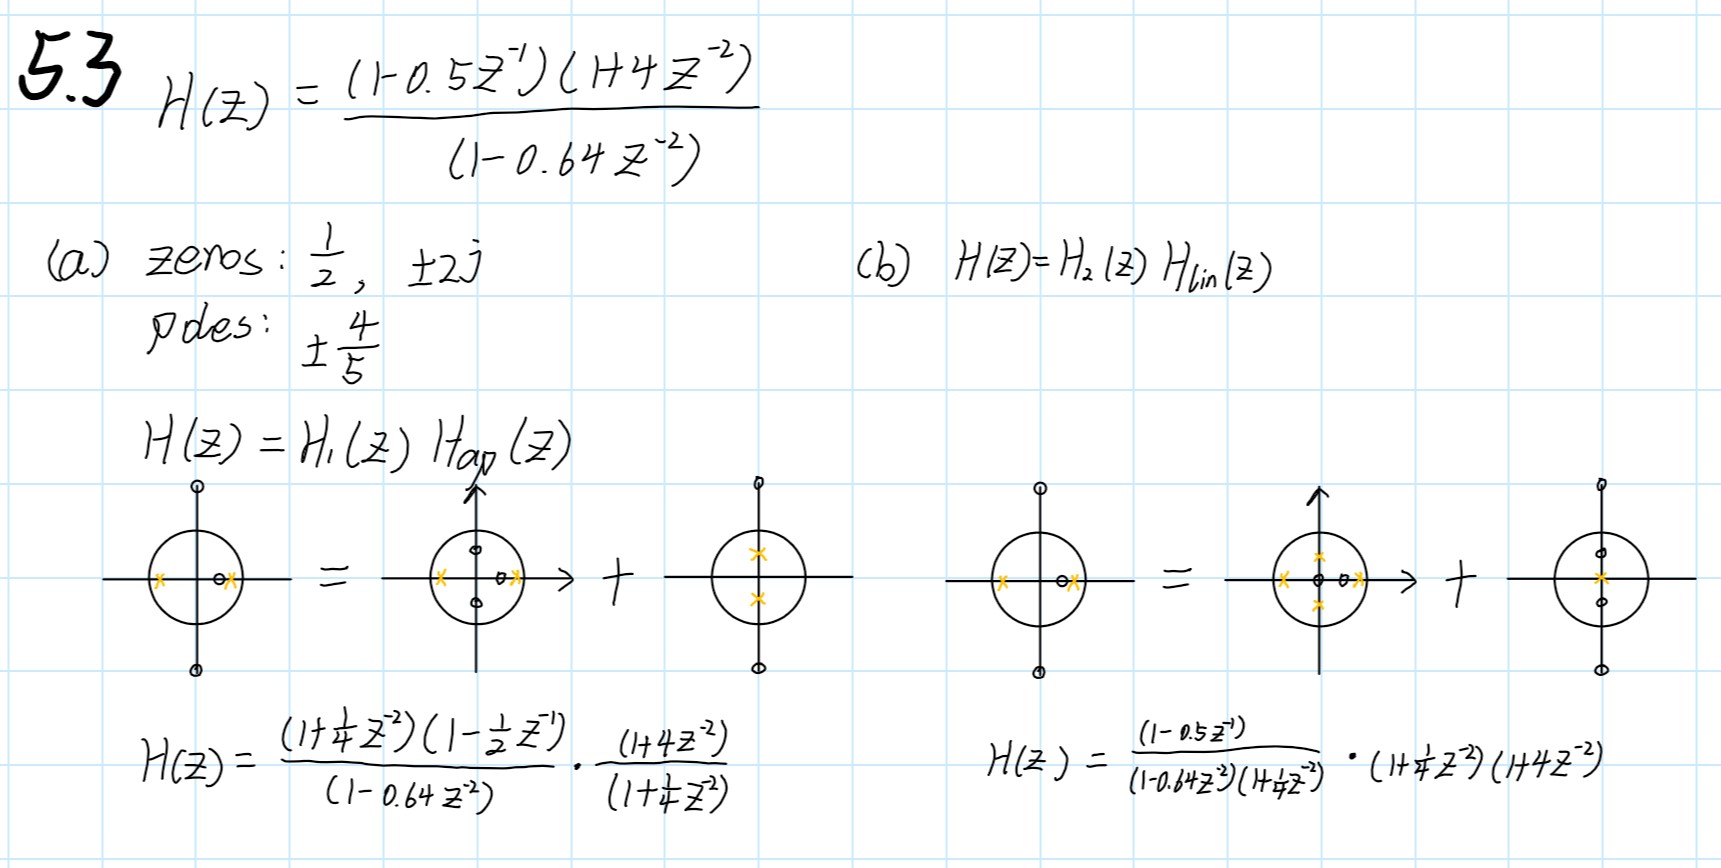 5.3 H(z) = (1-0.5z⁻¹)(1+4z⁻²) / (1-0.64z⁻²)
(a) zeros: 1/2, ±2j
poles: ±4/5
H(z) = H₁(z) Hap(z)
= +
H(z) = (1+1/4z⁻²)(1-1/2z⁻¹) / (1-0.64z⁻²) · (1+4z⁻²) / (1+1/4z⁻²)
(b) H(z) = H₂(z) Hlin(z)
= +
H(z) = (1-0.5z⁻¹) / (1-0.64z⁻²)(1+1/4z⁻²) · (1+1/4z⁻²)(1+4z⁻²)